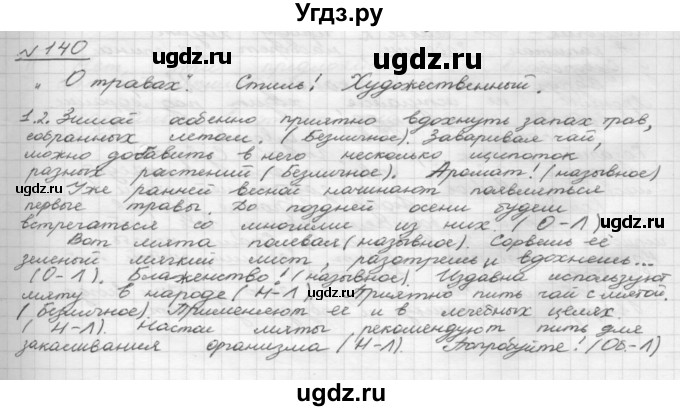 Угдз.ру
№140
„О травах“. Стиль: Художественный.
1.2. Зимой особенно приятно вдохнуть запах трав,
собранных летом. (Безличное). Заваривая чай,
можно добавить в него несколько щипоток
разных растений (Безличное). Аромат! (назывное)
Уже ранней весной начинают появляться
первые травы. До поздней осени будем
встречаться со многими из них! (О-Л)
Вот мята полевая (назывное). Сорвешь её
зеленый мягкий лист, разотрешь и вдохнешь...
(О-Л). Блаженство! (назывное). Издавна используют
мяту в народе (Н-Л). Приятно пить чай с мятой.
(Безличное). Применяют её и в лечебных целях.
(Н-Л). Настои мяты рекомендуют пить для
закаливания организма (Н-Л). Попробуйте! (Об-Л)
ugdz.ru
ugdz.ru
ugdz.ru
ugdz.ru
ugdz.ru
ugdz.ru
ugdz.ru
ugdz.ru
ugdz.ru
ugdz.ru
ugdz.ru
ugdz.ru